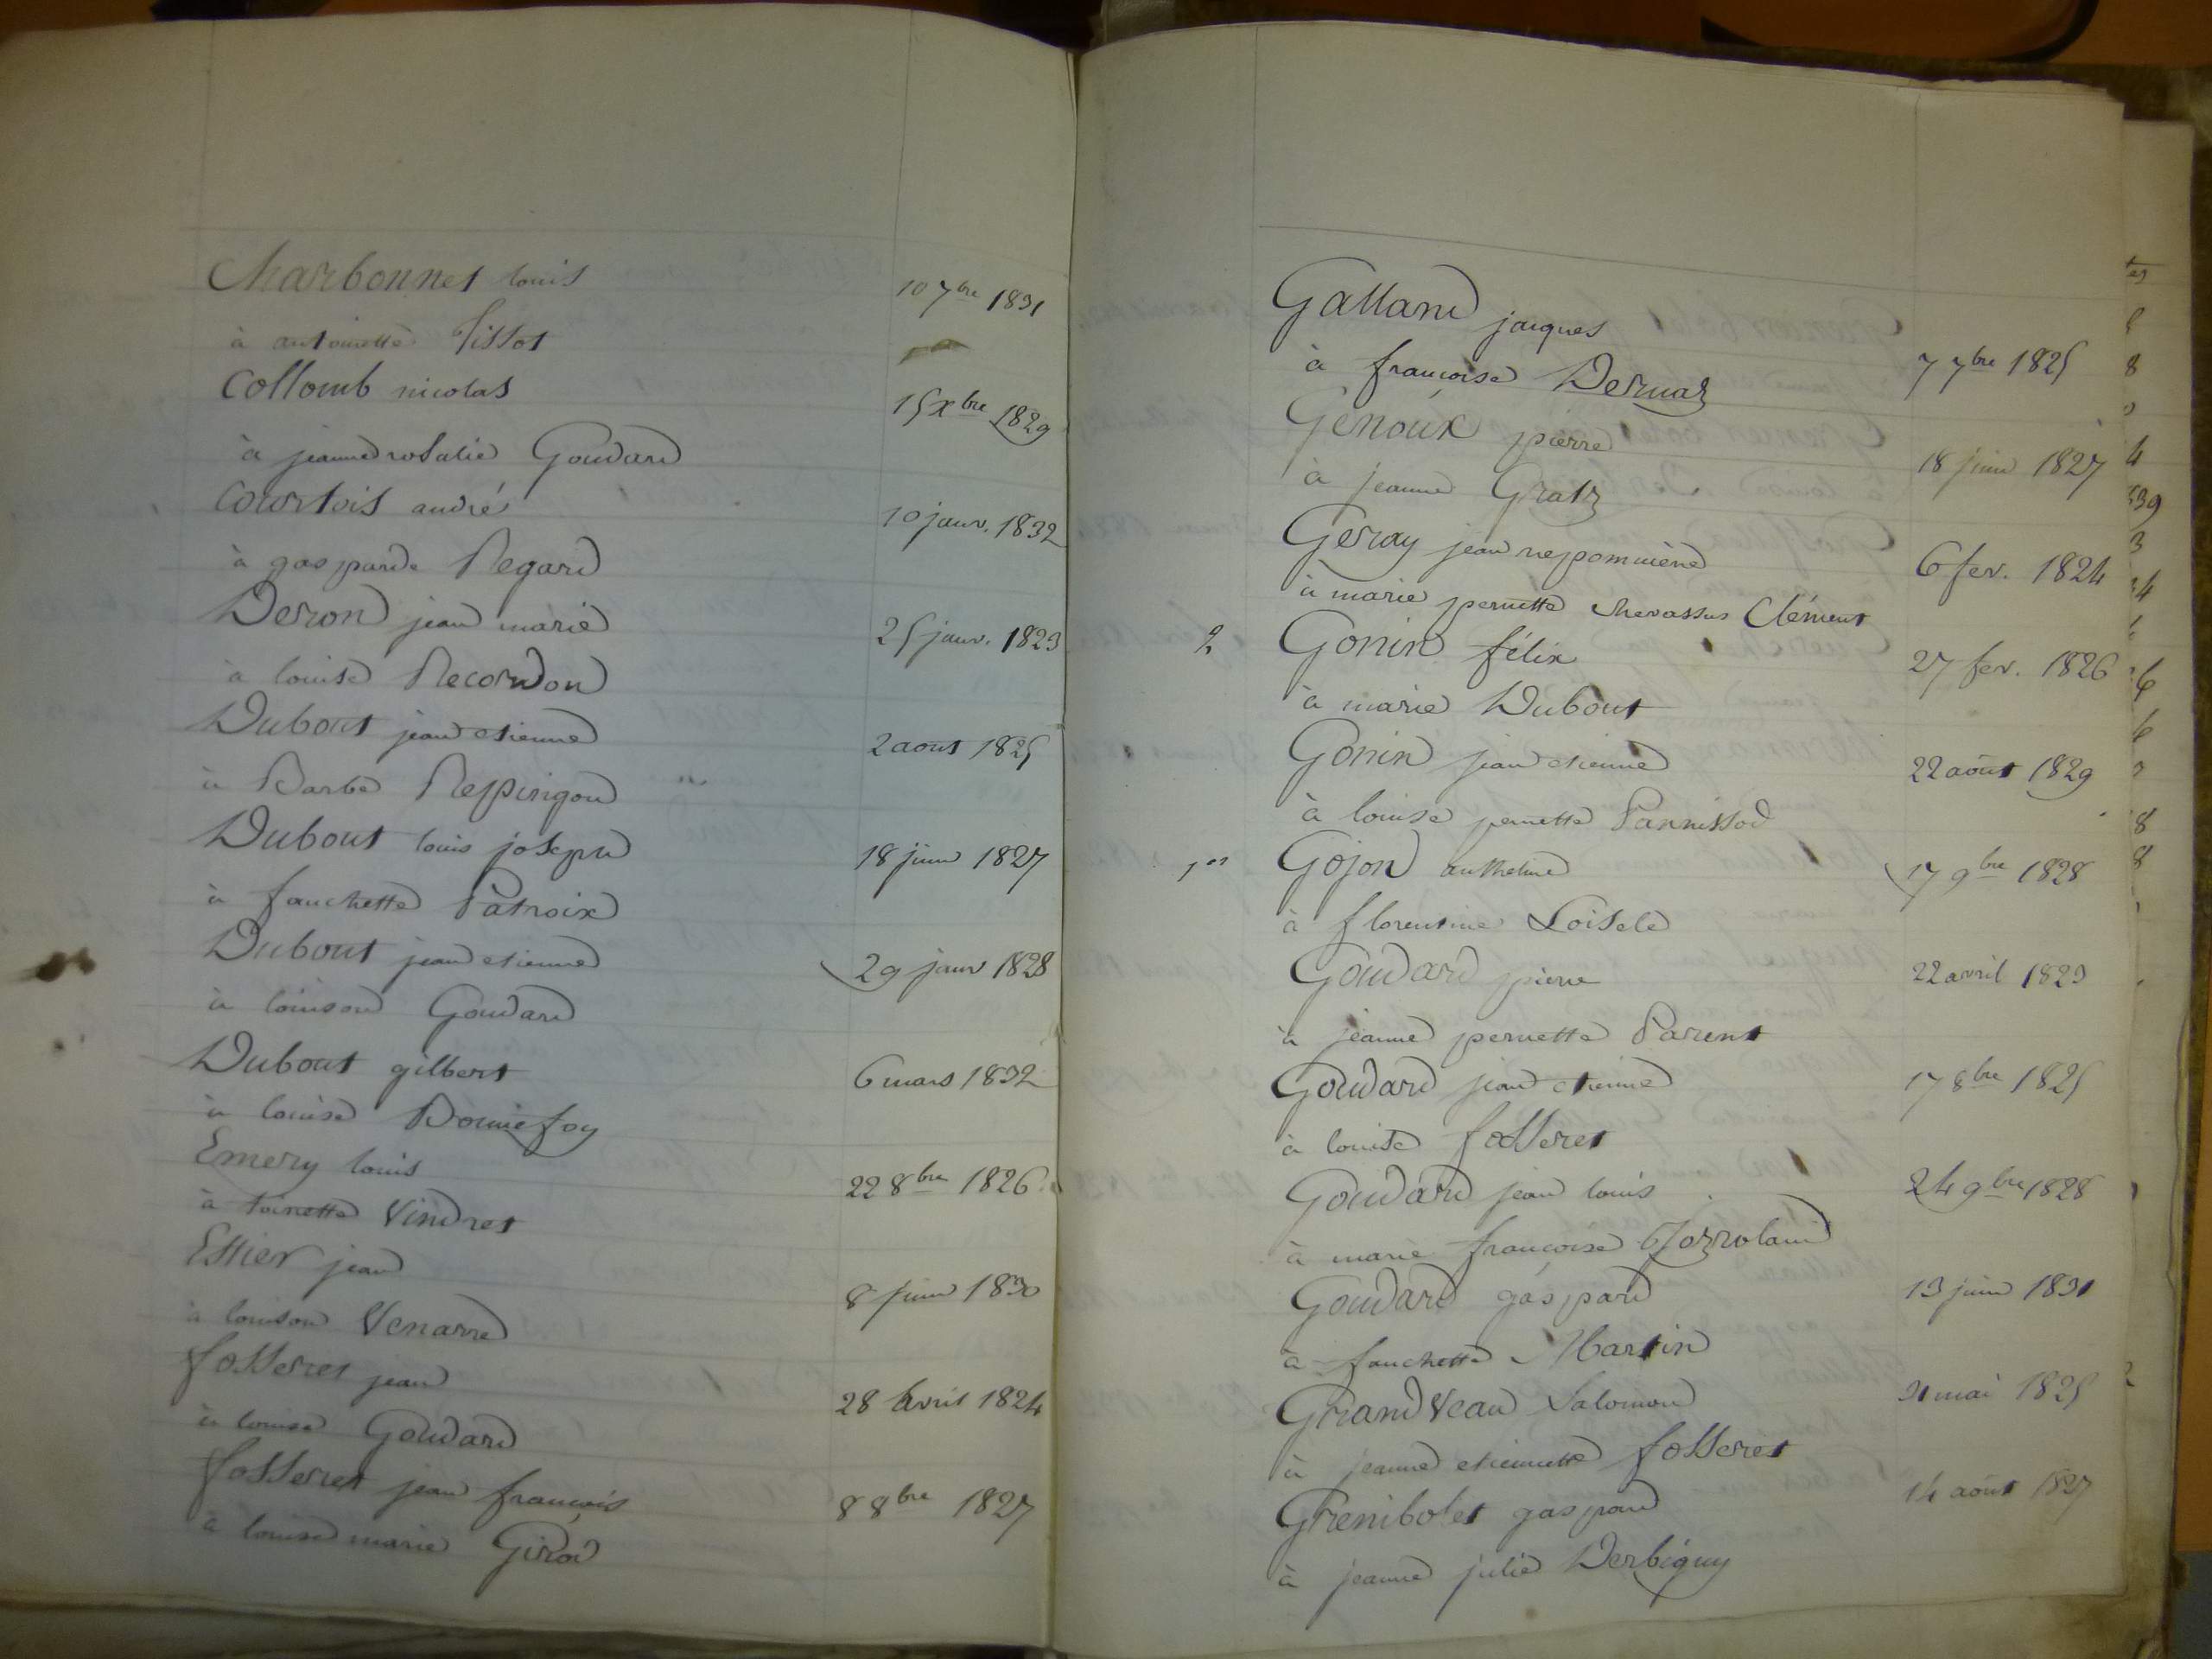 Charbonnet louis 10 7bre 1831
à antoinette Tissot
Collomb nicolas 15 Xbre 1829
à jeanne rosalie Goudard
Courtois andré 10 janv. 1832
à gasparde Regard
Deron jean marie 25 janv. 1823
à louise Recordon
Dubout jean etienne 2 aout 1825
à Barbe Respingou
Dubout louis joseph 18 juin 1827
à fanchette Patroix
Dubout jean etienne 29 janv 1828
à louison Goudard
Dubout gilbert 6 mars 1832
à louise Bonnefoy
Emery louis 22 8bre 1826
à toinette Vindret
Estier jean 8 juin 1830
à louison Venarre
fosseret jean 28 Avril 1824
à louise Goudard
fosseret jean françois 8 8bre 1827
à louise marie Girod
Galland jacques
à françoise Dernaz 7 7bre 1825
Genoux pierre
à jeanne Gratz 18 juin 1827
Geray jean nepomucène 6 fev. 1824
à marie pernette chevassus Clément
2 Gonin félix 27 fev. 1826
à marie Dubout
Gonin jean etienne 22 août 1829
à louise pernette Pannissod
1er Gojon anthelme 17 9bre 1828
à florentine Loisele
Goudard pierre 22 avril 1823
à jeanne pernette Parent
Goudard jean etienne 17 8bre 1825
à louise fosseret
Goudard jean louis 24 9bre 1828
à marie françoise
Goudard gaspard 13 juin 1831
à fanchette Martin
GrandVeau Salomon mai 1825
à jeanne etiennette fosseret
Grenibolet gaspard 14 août 1827
à jeanne julie Derbigny